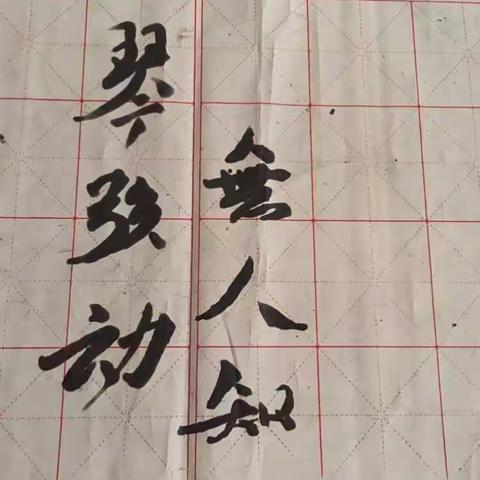 琴弦动
無人知